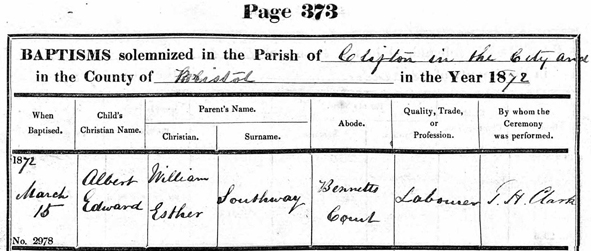 Page 373
BAPTISMS solemnized in the Parish of Clifton in the City and
in the County of Bristol in the Year 1872
When Baptised.
Child's Christian Name.
Parent's Name.
Christian.
Surname.
Abode.
Quality, Trade, or Profession.
By whom the Ceremony was performed.
1872
March 15
Albert Edward
William
Esther
Southway
Bennetts Court
Labourer
T. H. Clark
No. 2978